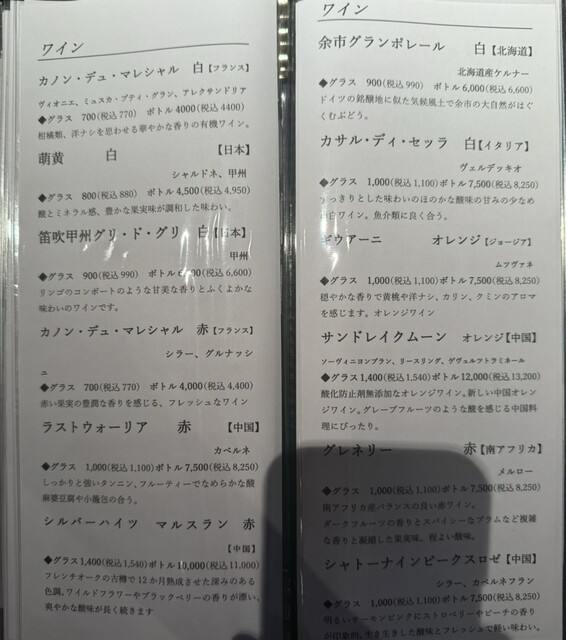 ワイン
カノン・デュ・マレシャル 白【フランス】
ヴィオニエ、ミュスカ・プティ・グラン、アレクサンドリア
◆グラス 700(税込770) ボトル4000(税込4400)
柑橘類、洋ナシを思わせる華やかな香りの有機ワイン。
萌黄 白 【日本】
シャルドネ、甲州
◆グラス 800(税込880) ボトル4,500(税込4,950)
酸とミネラル感、豊かな果実味が調和した味わい。
笛吹甲州グリ・ド・グリ 白【日本】
甲州
◆グラス 900(税込990) ボトル (税込6,600)
リンゴのコンポートのような甘美な香りとふくよかな
味わいのワインです。
カノン・デュ・マレシャル 赤【フランス】
シラー、グルナッシ
ュ
◆グラス 700(税込770) ボトル4,000(税込4,400)
赤い果実の豊潤な香りを感じる、フレッシュなワイン
ラストウォーリア 赤 【中国】
カベルネ
◆グラス 1,000(税込1,100)ボトル7,500(税込8,250)
しっかりと強いタンニン、フルーティーでなめらかな酸
麻婆豆腐や小籠包の合う。
シルバーハイツ マルスラン 赤
【中国】
◆グラス1,400(税込1,540)ボトル10,000(税込11,000)
フレンチオークの古樽で12か月熟成させた深みのある
色調。ワイルドフラワーやブラックベリーの香りが漂い、
爽やかな酸味が長く続きます
ワイン
余市グランポレール 白【北海道】
北海道産ケルナー
◆グラス 900(税込990) ボトル6,000(税込6,600)
ドイツの銘醸地に似た気候風土で余市の大自然がはぐ
くむぶどう。
カサル・ディ・セッラ 白【イタリア】
ヴェルデッキオ
◆グラス 1,000(税込1,100)ボトル7,500(税込8,250)
すっきりとした味わいのほのかな酸味の甘みの少なめ
白ワイン。魚介類に良く合う。
ギウアーニ オレンジ【ジョージア】
ムツヴァネ
◆グラス 1,000(税込1,100)ボトル7,500(税込8,250)
穏やかな香りで黄桃や洋ナシ、カリン、クミンのアロマ
を感じます。オレンジワイン
サンドレイクムーン オレンジ【中国】
ソーヴィニヨンブラン、リースリング、ゲヴュルフトラミネール
◆グラス1,400(税込1,540)ボトル12,000(税込13,200)
酸化防止剤無添加なオレンジワイン。新しい中国オレン
ジワイン。グレープフルーツのような酸を感じる中国料
理にぴったり。
グレネリー 赤【南アフリカ】
メルロー
◆グラス 1,000(税込1,100)ボトル7,500(税込8,250)
南アフリカ産バランスの良い赤ワイン。
ダークフルーツの香りとスパイシーなプラムなど複雑
な香りと凝縮した果実味、程よい酸味。
シャトーナインピークスロゼ【中国】
シラー、カベルネフラン
◆グラス 1,000(税込1,100)ボトル7,500(税込8,250)
明るいサーモンピンクにストロベリーやピーチの香り
が印象的。生き生きした酸味とフレッシュで軽い味わい。